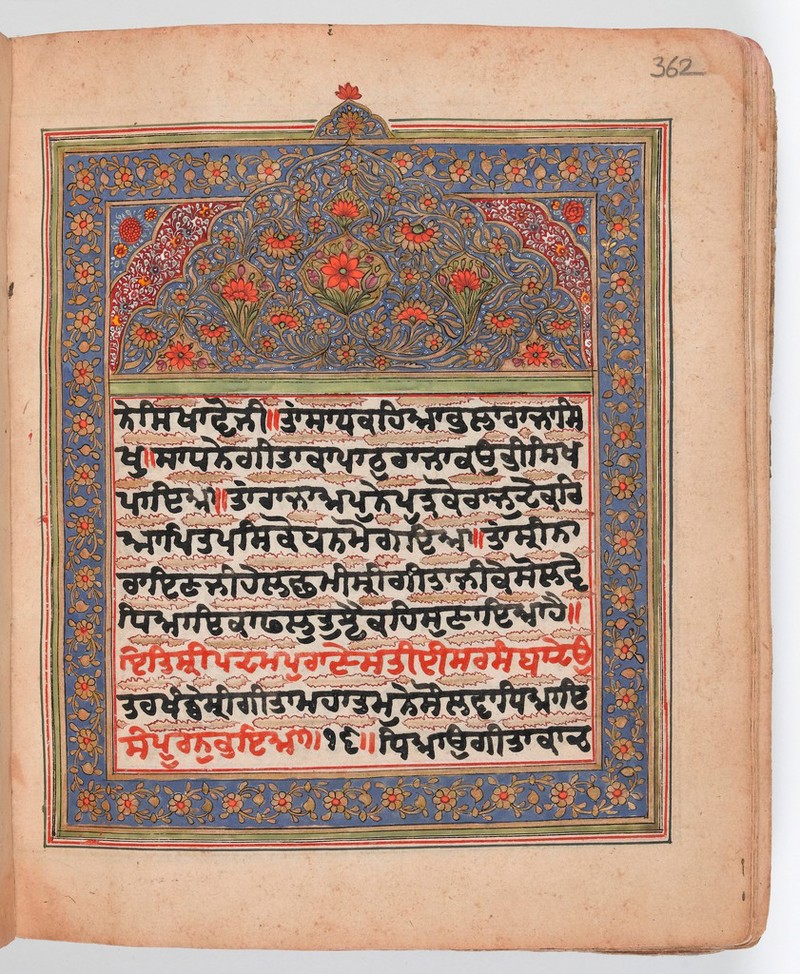 362
ਨੇਸਿਖਾਈਜੀ॥ਤਾਂਸਾਧਕਹਿਆਕੁਲਾਰਾਜਾਸਿ
ਖੁ॥ਸਾਧਨੇਗੀਤਾਕਾਪਾਠੁਰਾਜਾਕਉਕੀਸਿਖ
ਪਾਇਆ॥ਤਾਂਰਾਜਾਅਪਨੇਪਤ੍ਰਕੋਰਾਜਦੇਕਰਿ
ਆਪਿਤਪਸਿਕੋਬਨਮੋਗਇਆ॥ਤਾਂਸ੍ਰੀਨਾ
ਰਾਇਣਜੀਹੇਲਛਮੀਸ੍ਰੀਗੀਤਾਜੀਕੇਸੋਲਵੇ
ਧਿਆਇਕਾਫਲੁਤੁਝੈਕਹਿਸੁਣਾਇਆਹੈ॥
ਇਤਿਸ੍ਰੀਪਦਮਪੁਰਾਣੇਸਤੀਈਸਰਸੰਬਾਦੇਉ
ਤਰਖੰਡੇਸ੍ਰੀਗੀਤਾਮਹਾਤਮੁਨੇਸੋਲਵਾਧਿਆਇ
ਸੰਪੂਰਨੁਕੁਇਆ॥੧੬॥ਧਿਆਉਗੀਤਾਕਾਛ